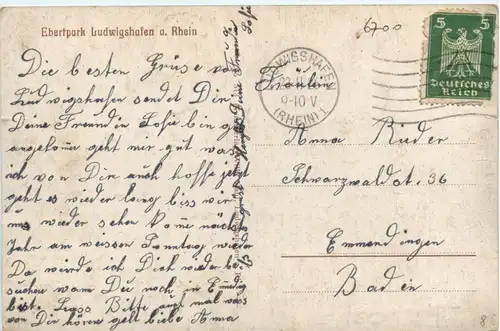 Ebertpark Ludwigshafen a. Rhein
6700
Die besten Grüse von
Ludwigshafen sendet Dir
Deine Freundin Sofie bin gut
angekomen geht mir gut was
ich von Dir auch hoffe jetzt
geht es wieder lang bis wir
uns wieder sehen kome nächstes
Jahr am weissen Sonntag wieder
Da würde ich Dich wieder be
suchen wann Du noch in Emding
bist. Bitte auch mal was
von Dir hören gelt liebe Anna
Es grüst Herzlich Deine Freundin
Sofie
LUDWIGSHAFEN
9-10 V
(RHEIN) 1
5 5
Deutsches
Reich
Fräulein
Anna Rüder
Schwarzwaldst. 36
Emmendingen
Baden